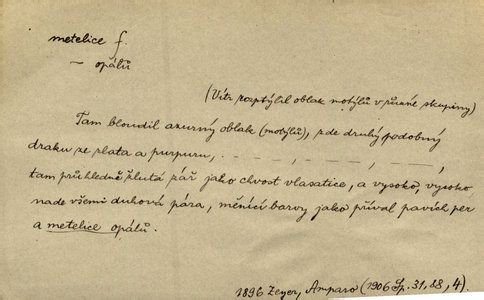 metelice f.
— opálů
(Vítr rozptýlil oblak motýlů v různé skupiny)
Tam bloudil azurný oblak (motýlů), zde druhý podobný
draku ze zlata a purpuru, . — — — , — — — , — — — ,
tam průhledně žlutá zář jako chvost vlasatice, a vysoko, vysoko
nade všemi duhová pára, měnící barvy jako příval pavích per
a metelice opálů.
1896 Zeyer, Amparo (1906 Sp. 31, 88, 4).